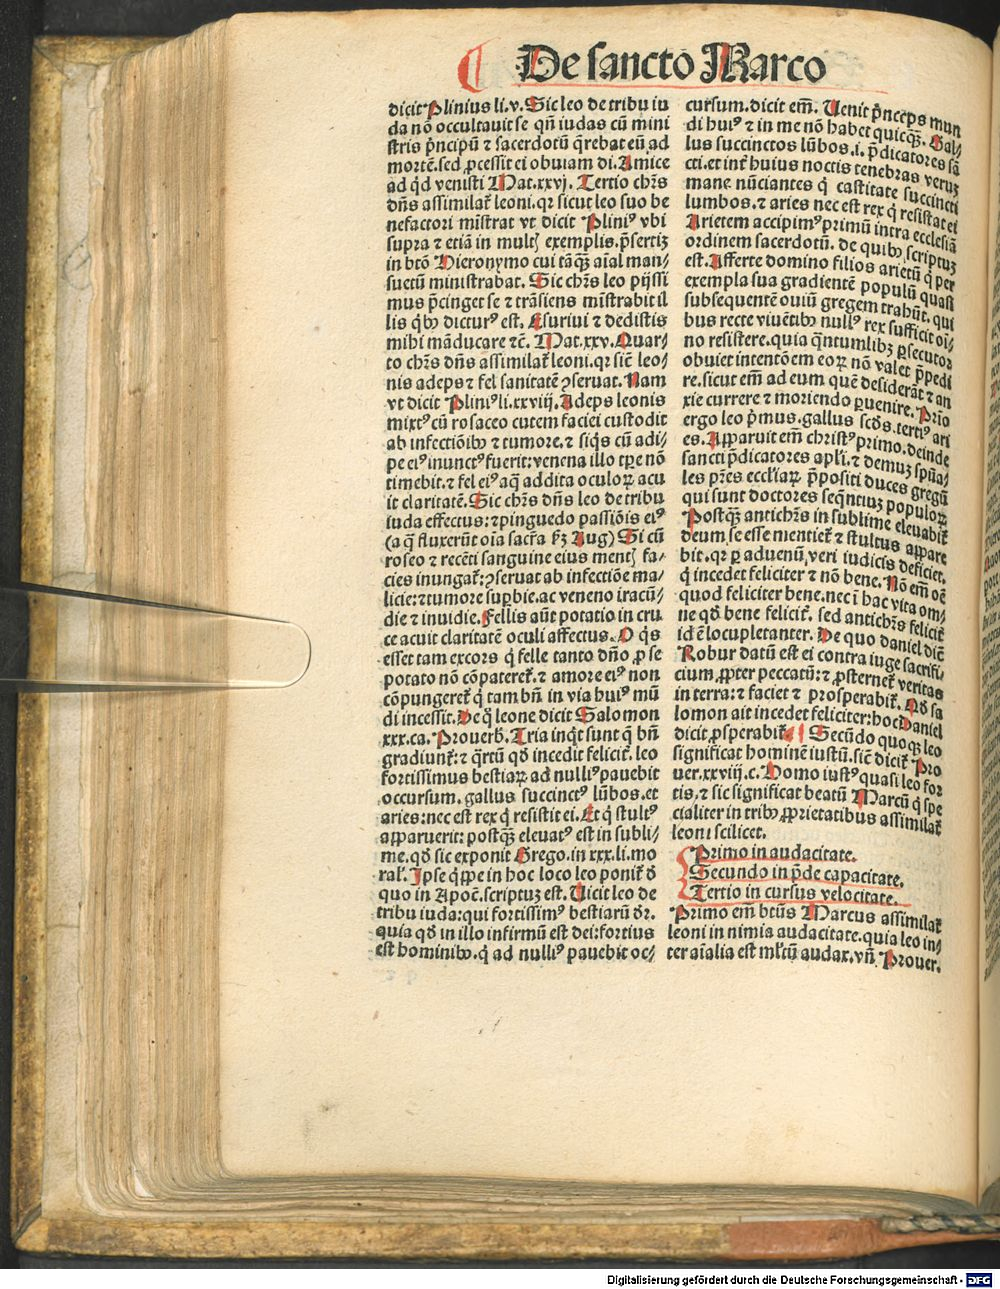 De sancto Marco
dicit Plinius li.v. Sic leo de tribu iu
da nō occultauit se qñ iudas cū mini
stris p̄ncipū ⁊ sacerdotū q̄rebat eū ad
mortē.sed ꝓcessit ei obuiam di. Amice
ad qd venisti Mat.xxvj. Tertio chr̄s
dn̄s assimilat̄ leoni.qꝛ sicut leo suo be
nefactori mīstrat vt dicit Pliniꝰ vbi
supra ⁊ etiā in multꝭ exemplis.p̄sertiꝫ
in btō Hieronymo cui tāqꝫ aīal man⸗
suetū ministrabat. Sic chr̄s leo pijssi
mus p̄cinget se ⁊ trāsiens mīstrabit il
lis qͥbꝰ dicturꝰ est. Esuriui ⁊ dedistis
mihi māducare ⁊c̄. Mat.xxv. Quar⸗
to chr̄s dn̄s assimilat̄ leoni.qꝛ sic̄ leo⸗
nis adeps ⁊ fel sanitatē ꝯseruat. Nam
vt dicit Pliniꝰ li.xxviij. Adeps leonis
mixtꝰ cū rosaceo cutem faciei custodit
ab infectiōibꝰ ⁊ tumore.⁊ siqs cū adi⸗
pe eiꝰ inunctꝰ fuerit:venena illo tp̄e nō
timebit.⁊ fel eiꝰ aq̄ addita oculoꝝ acu
it claritatē. Sic chr̄s dn̄s leo de tribu
iuda effectus:⁊ pinguedo passiōis eiꝰ
(a q̄ fluxerūt oīa sacr̄a ẜꝫ Aug) Si cū
roseo ⁊ recēti sanguine eius mentꝭ fa⸗
cies inungat̄:ꝯseruat ab infectiōe ma⸗
licie:⁊ tumore suꝑbie.ac veneno iracū⸗
die ⁊ inuidie. Fellis aūt potatio in cru
ce acuit claritatē oculi affectus. O qs
esset tam excors q felle tanto dn̄o ꝓ se
potato nō cōpateret̄.⁊ amore eiꝰ non
cōpungeret̄ q tam bn̄ in via huiꝰ mū
di incessit. De q̄ leone dicit Salomon
xxx.ca. Prouerb̄. Tria inqt sunt q̄ bn̄
gradiunt̄:⁊ q̄rtū qd incedit felicit̄. leo
fortissimus bestiaꝝ ad nulliꝰ pauebit
occursum.gallus succinctꝰ lūbos.et
aries:nec est rex q resistit ei. Et q stultꝰ
apparuerit:postqꝫ eleuatꝰ est in subli⸗
me.qd sic exponit Grego.in xxx.li.mo
ral̄. Ipse qppe in hoc loco leo ponit̄ ð
quo in Apoc̄.scriptuꝫ est. Vicit leo de
tribu iuda:qui fortissimꝰ bestiarū dr̄.
quia qd in illo infirmū est dei:fortius
est hominibꝰ.q ad nulliꝰ pauebit oc⸗
cursum.dicit em̄. Venit p̄nceps mun
di huiꝰ ⁊ in me nō habet quicqꝫ. Gal⸗
lus succinctos lūbos.i.p̄dicatores sā
cti.et int̄ huius noctis tenebras veruꝫ
mane nūciantes q castitate succincti
lumbos.⁊ aries nec est rex q resistat ei
Arietem accipimꝰ primū intra ecclesiā
ordinem sacerdotū. de quibꝰ scriptuꝫ
est. Afferte domino filios arietū q per
exempla sua gradientē populū quasi
subsequentē ouiū gregem trahūt. qui
bus recte viuētibꝰ nullꝰ rex sufficit oī⸗
no resistere.quia q̄ntumlibꝫ ꝑsecutor
obuiet intentōem eoꝝ nō valet p̄pedi
re.sicut em̄ ad eum quē desiderāt ⁊ an
xie currere ⁊ moriendo ꝑuenire. Prīo
ergo leo pͥmus.gallus scd̄s.tertiꝰ ari
es. Apparuit em̄ christꝰ primo.deinde
sancti p̄dicatores apl̄i.⁊ demuꝫ spūa⸗
les pr̄es eccl̄iaꝝ p̄positi duces gregū
qui sunt doctores seq̄ntiuꝫ populoꝝ
Postqꝫ antichr̄s in sublime eleuabit̄
deum se esse mentiet̄ ⁊ stultus appare
bit.qꝛ ꝑ aduenū veri iudicis deficiet.
q incedet feliciter ⁊ nō bene. Nō em̄ oē
quod feliciter bene.nec ī hac vita om⸗
ne qd bene felicit̄. sed antichr̄s felicit̄
id ē locupletanter. De quo daniel dic̄
Robur datū est ei contra iuge sacrifi⸗
cium ꝓpter peccatū:⁊ ꝓsternet̄ veritas
in terra:⁊ faciet ⁊ prosperabit̄. Qd sa
lomon ait incedet feliciter:hoc Daniel
dicit ꝓsperabit̄ Secūdo quoqꝫ leo
significat hominē iustū.sic̄ dicit̄ Pro
uer.xxviij.c. Homo iustꝰ quasi leo for
tis.⁊ sic significat beatū Marcū q spe
cialiter in tribꝰ ꝓprietatibus assimilat̄
leoni scilicet.
Primo in audacitate.
Secundo in p̄de capacitate.
Tertio in cursus velocitate.
Primo em̄ btūs Marcus assimilat̄
leoni in nimia audacitate.quia leo in⸗
ter aīalia est ml̄tū audax.vn̄ Prouer.
Digitalisierung gefördert durch die Deutsche Forschungsgemeinschaft - DFG